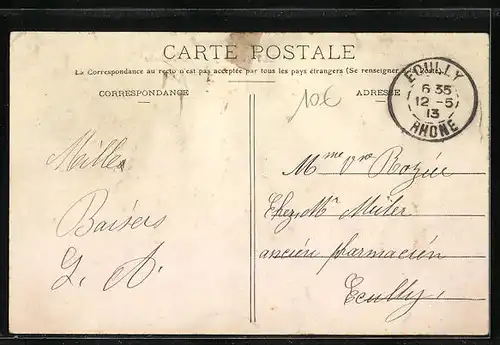 CARTE POSTALE
La Correspondance au recto n'est pas acceptée par tous les pays étrangers (Se renseigner à la Poste).
CORRESPONDANCE
ADRESSE
10€
ECULLY
6 35
12 - 5
13
RHONE
Mille
Baisers
G. A.
Mme Vve Rozée
Chez Mr Miiler
ancien pharmacien
Ecully.